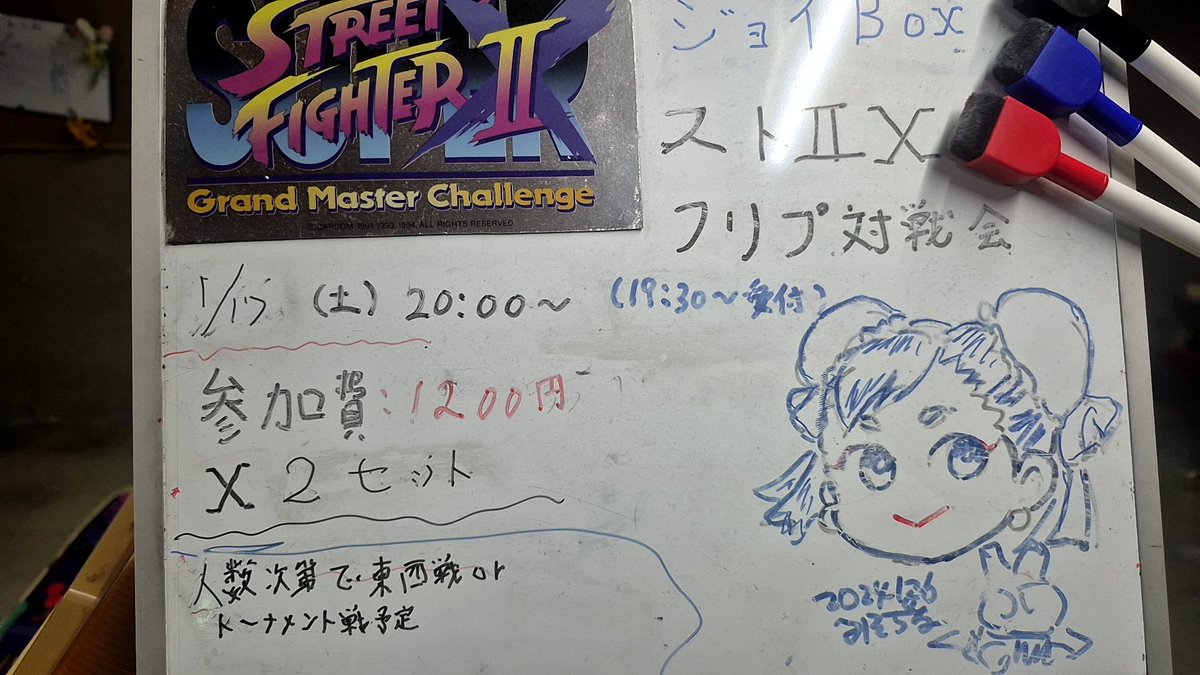 STREET
FIGHTER II X
SUPER
Grand Master Challenge
© CAPCOM 1991, 1993, 1994, ALL RIGHTS RESERVED
ジョイBox
ストⅡX
フリプ対戦会
(土) 20:00～ (19:30～受付)
参加費:1200円
X 2セット
人数次第で東西戦or
トーナメント戦予定